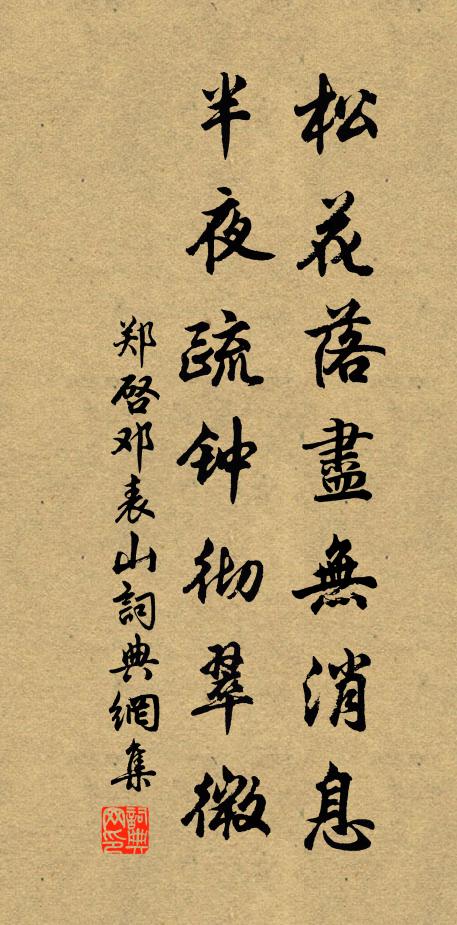 松花落盡無消息
半夜疏钟彻翠微
郑启邓表山詞典網集
詞典網印